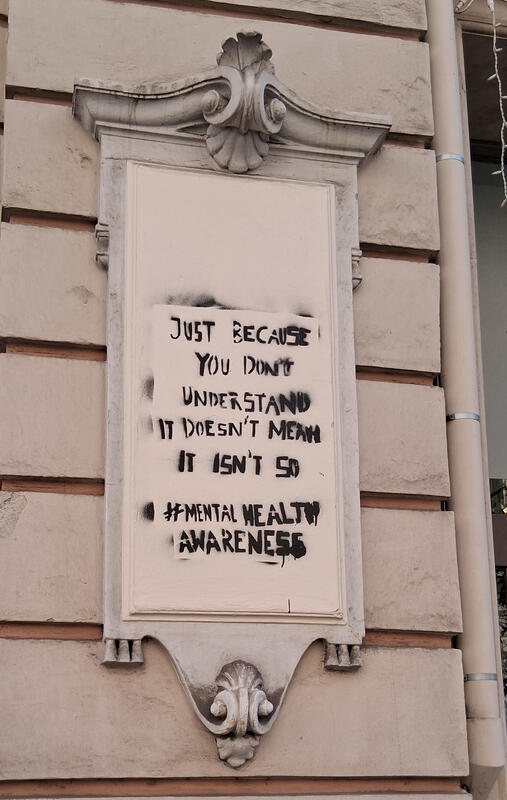 JUST BECAUSE
YOU DON'T
UNDERSTAND
IT DOESN'T MEAN
IT ISN'T SO
#MENTAL HEALTH
AWARENESS